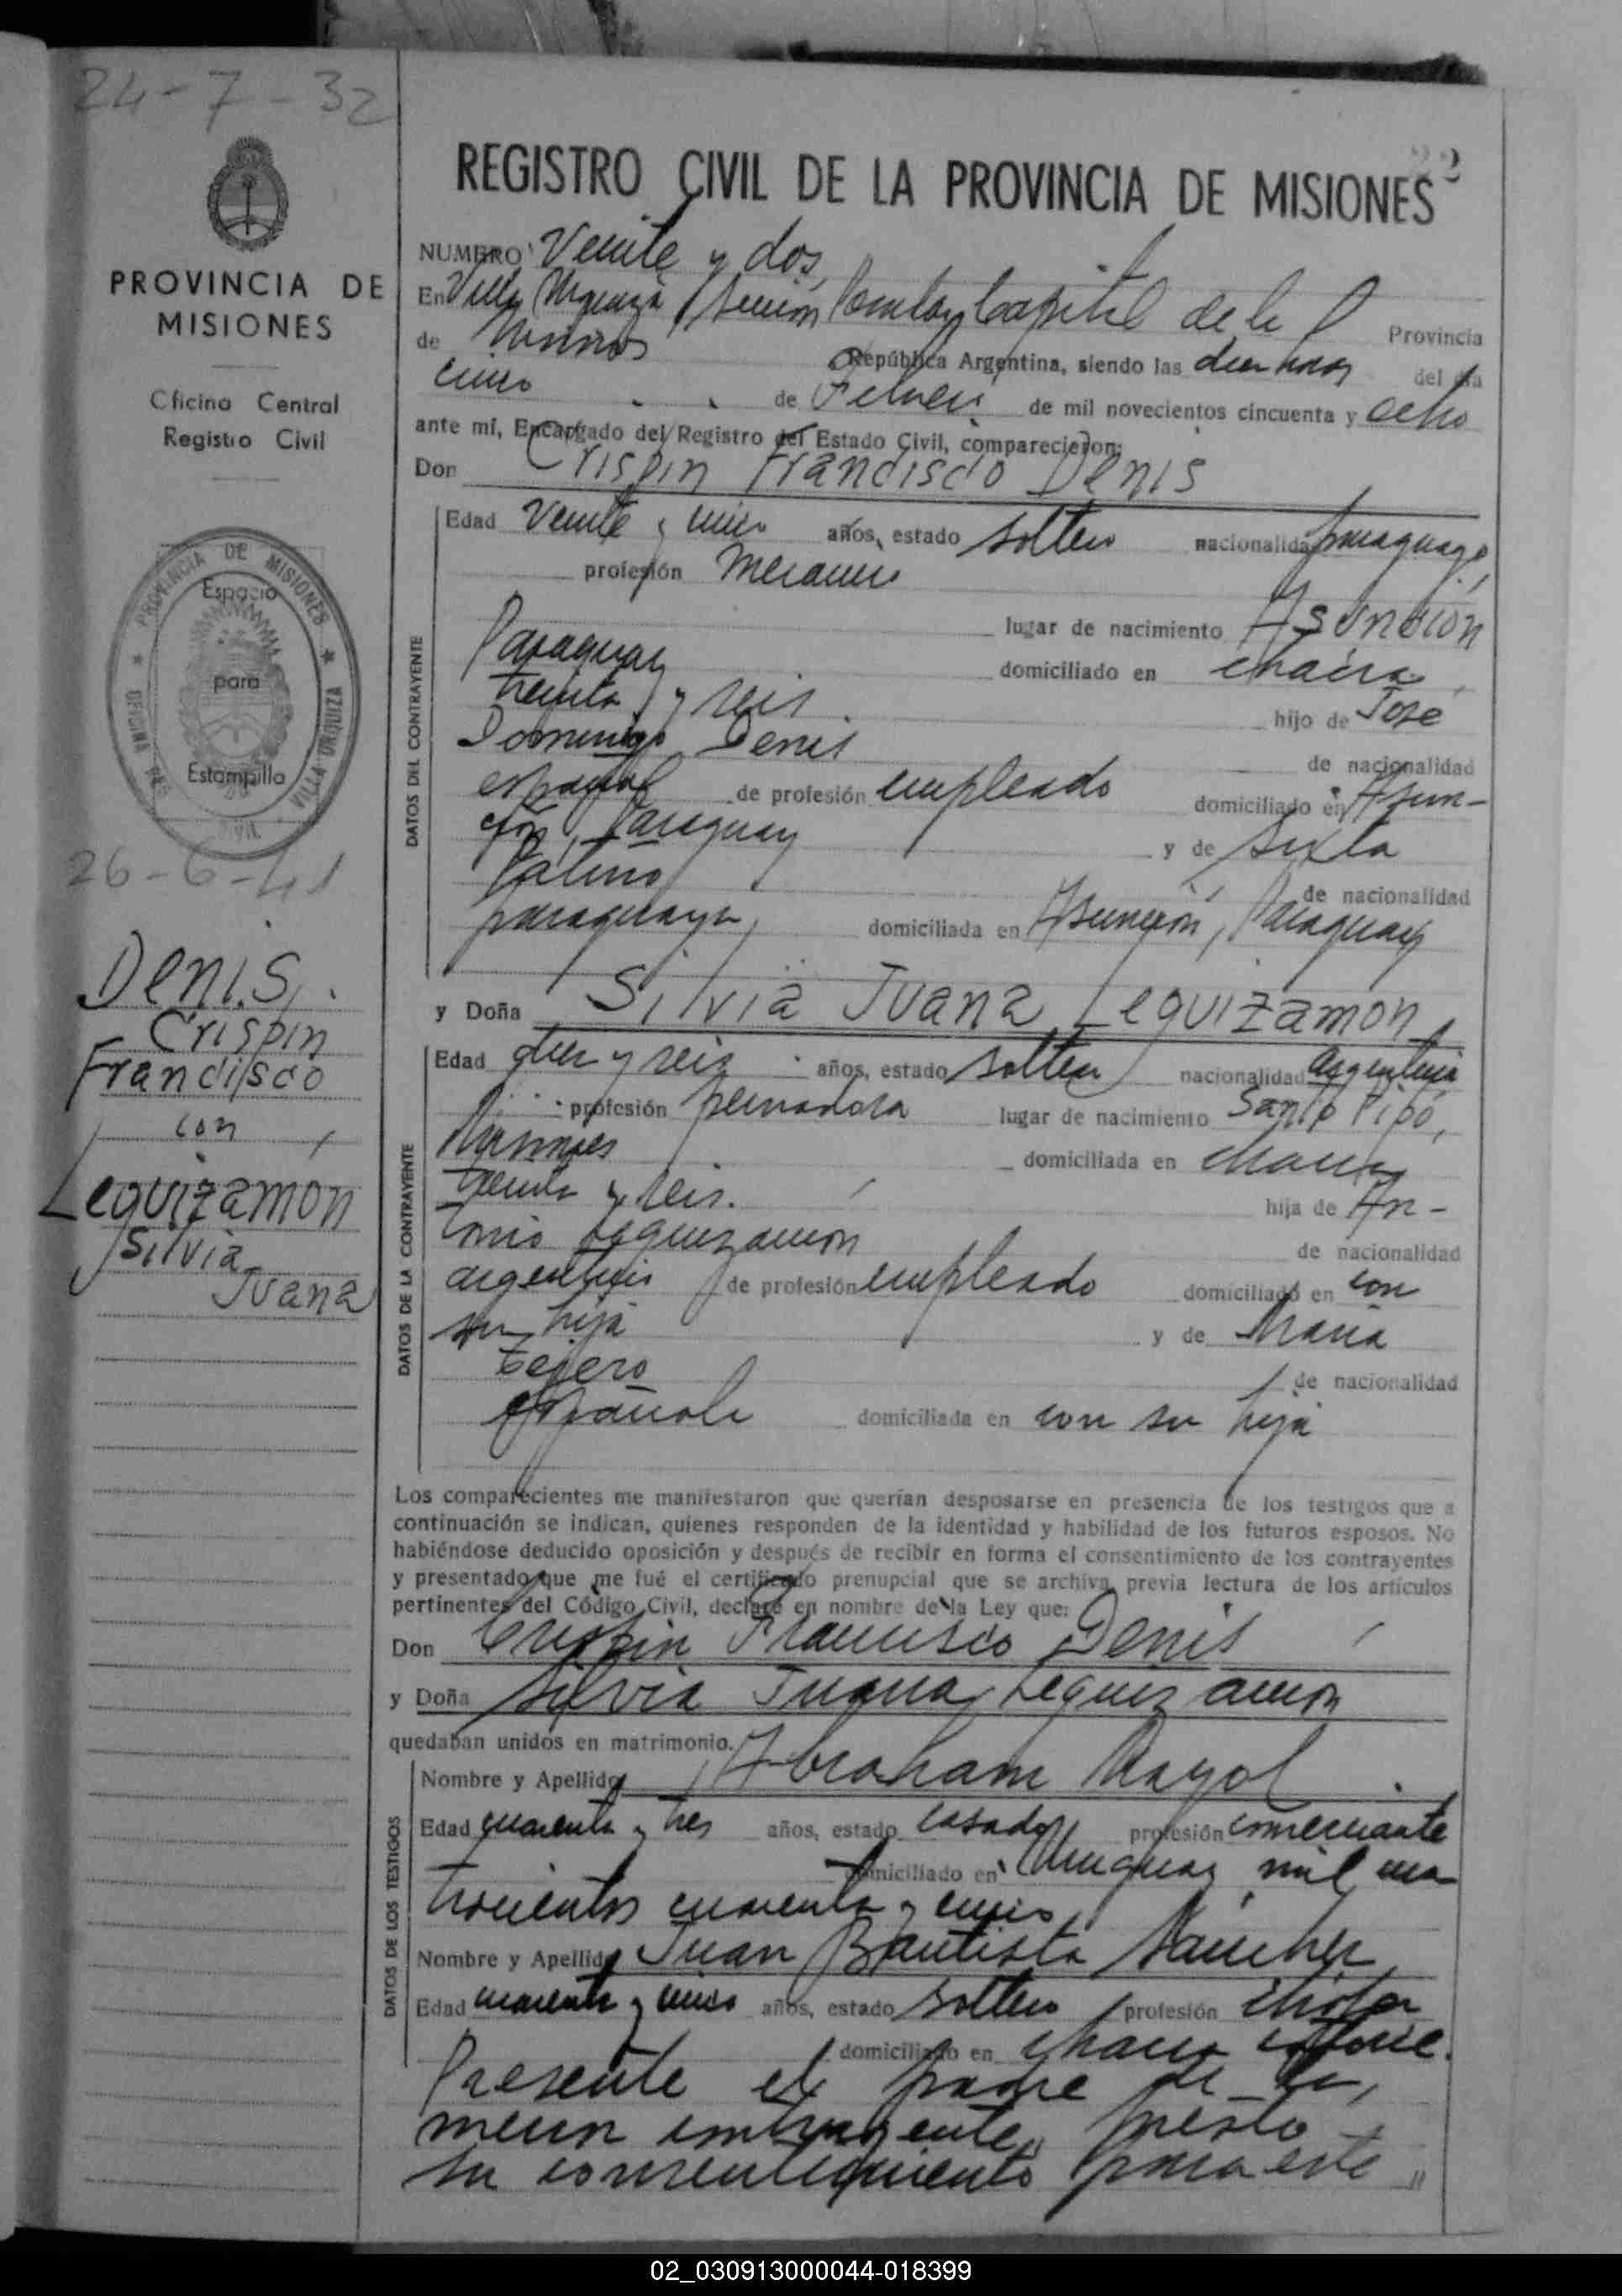 24-7-32
PROVINCIA DE
MISIONES
Oficina Central
Registro Civil
PROVINCIA DE MISIONES
Espacio
para
Estampilla
OFICINA CIVIL VILLA URQUIZA
26-6-41
DENIS,
Crispin
Francisco
con
Leguizamón
Silvia
Juana
22
REGISTRO CIVIL DE LA PROVINCIA DE MISIONES
NUMERO Veinte y dos,
En Villa Urquiza, Sección Capital de la Provincia
de Misiones República Argentina, siendo las diez horas del día
cinco de Febrero de mil novecientos cincuenta y ocho
ante mí, Encargado del Registro del Estado Civil, comparecieron:
Don Crispin Francisco Denis
DATOS DEL CONTRAYENTE
Edad veinte y cinco años, estado soltero nacionalidad paraguayo,
profesión Mecanico
lugar de nacimiento Asunción
Paraguay domiciliado en chacra
treinta y seis hijo de José
Domingo Denis de nacionalidad
español de profesión empleado domiciliado en Asun-
ción, Paraguay y de Sixta
Patiño de nacionalidad
paraguaya, domiciliada en Asunción, Paraguay
y Doña Silvia Juana Leguizamon
DATOS DE LA CONTRAYENTE
Edad diez y seis años, estado soltera nacionalidad argentina
profesión peinadora lugar de nacimiento Santo Pipó,
Misiones domiciliada en chacra
treinta y seis. hija de An-
tonio Leguizamón de nacionalidad
argentino de profesión empleado domiciliado en con
su hija y de María
Tejero de nacionalidad
española domiciliada en con su hija
Los comparecientes me manifestaron que querían desposarse en presencia de los testigos que a
continuación se indican, quienes responden de la identidad y habilidad de los futuros esposos. No
habiéndose deducido oposición y después de recibir en forma el consentimiento de los contrayentes
y presentado que me fué el certificado prenupcial que se archiva, previa lectura de los artículos
pertinentes del Código Civil, declaré en nombre de la Ley que:
Don Crispin Francisco Denis
y Doña Silvia Juana Leguizamon
quedaban unidos en matrimonio.
DATOS DE LOS TESTIGOS
Nombre y Apellido Abraham Mayol
Edad cuarenta y tres años, estado casado, profesión comerciante
domiciliado en Uruguay mil cua-
trocientos cuarenta y cinco
Nombre y Apellido Juan Bautista Sanchez
Edad cuarenta y cinco años, estado soltero profesión chofer
domiciliado en chacra catorce.
Presente el padre de la
menor contrayente, presta
su consentimiento para este
02_030913000044-018399